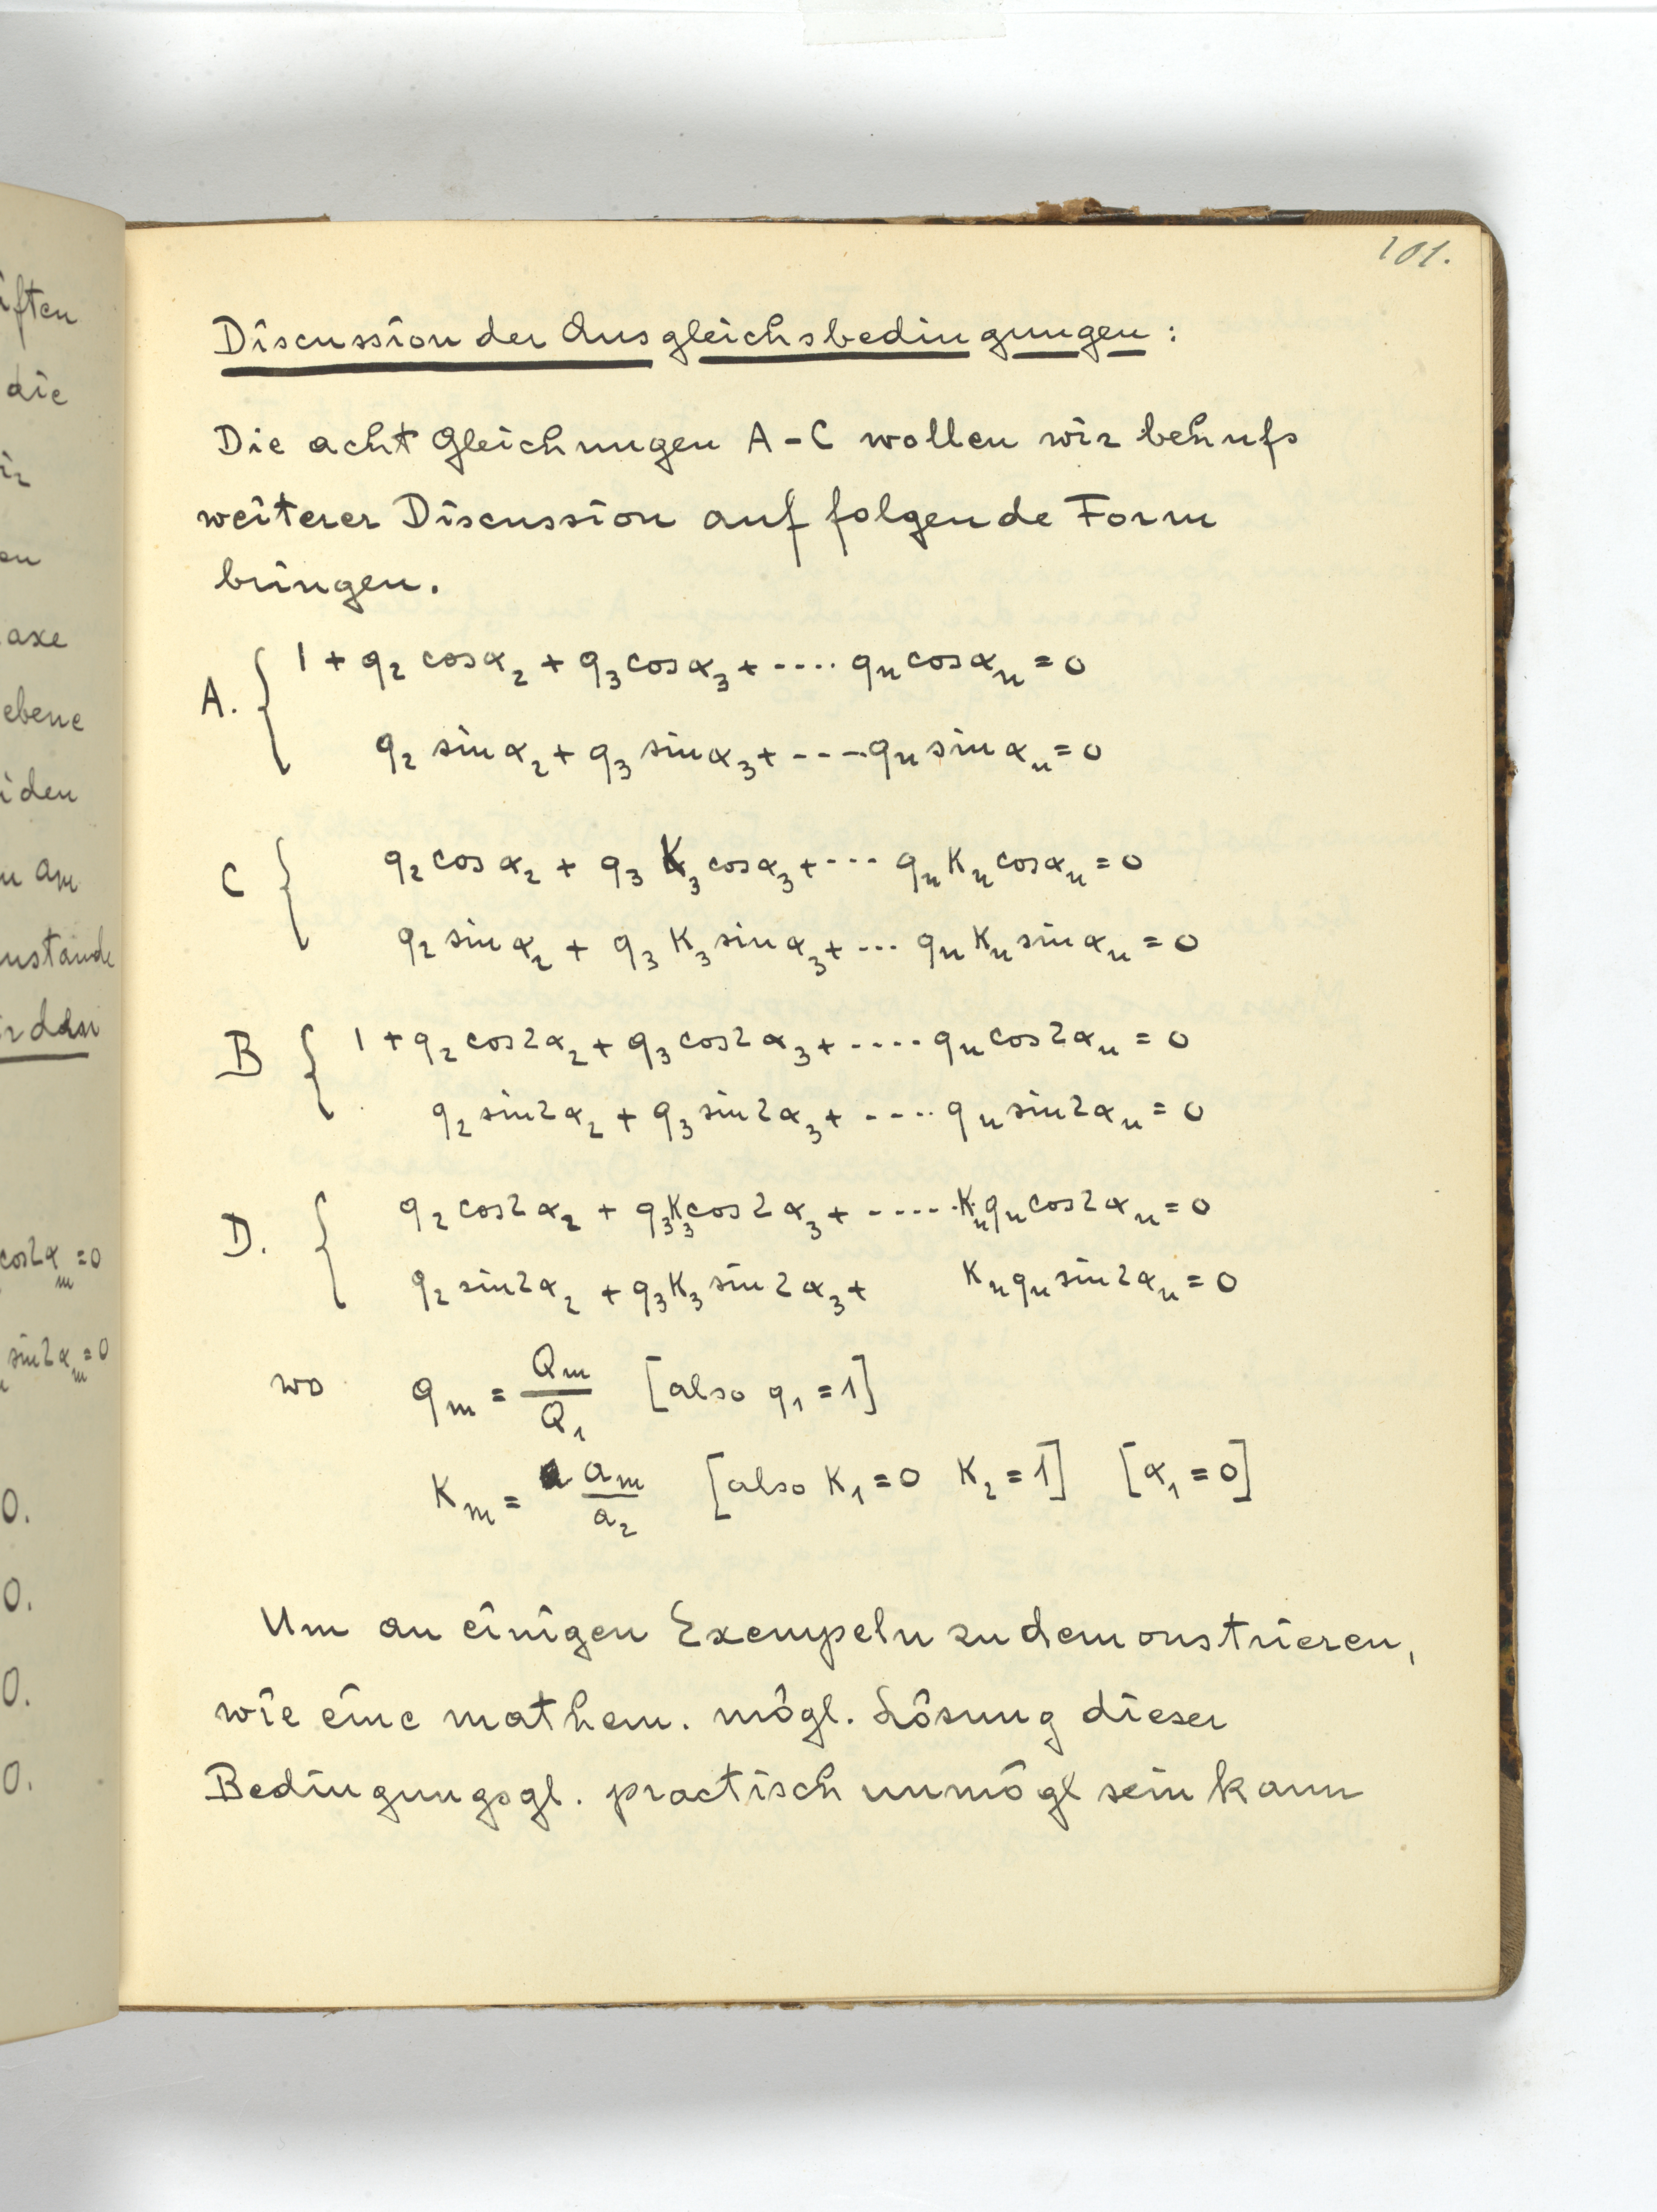 101.
Discussion der Ausgleichsbedingungen:
Die acht Gleichungen A-C wollen wir behufs
weiterer Discussion auf folgende Form
bringen.
A. { 1 + q₂ cosα₂ + q₃ cosα₃ + .... qₙ cosαₙ = 0
q₂ sinα₂ + q₃ sinα₃ + ---- qₙ sinαₙ = 0
C { q₂ cosα₂ + q₃ K₃ cosα₃ + --- qₙ Kₙ cosαₙ = 0
q₂ sinα₂ + q₃ K₃ sinα₃ + ... qₙ Kₙ sinαₙ = 0
B { 1 + q₂ cos2α₂ + q₃ cos2α₃ + ..... qₙ cos2αₙ = 0
q₂ sin2α₂ + q₃ sin2α₃ + ..... qₙ sin2αₙ = 0
D. { q₂ cos2α₂ + q₃K₃cos2α₃ + ...... Kₙqₙcos2αₙ = 0
q₂ sin2α₂ + q₃K₃ sin2α₃ + Kₙqₙ sin2αₙ = 0
wo qₘ = Qₘ/Q₁ [also q₁ = 1]
Kₘ = aₘ/a₂ [also K₁ = 0 K₂ = 1] [α₁ = 0]
Um an einigen Exempeln zu demonstrieren,
wie eine mathem. mögl. Lösung dieser
Bedingungsgl. practisch unmögl sein kann
iften
die
axe
ebene
iden
am
cos2αₘ = 0
sin2αₘ = 0
0.
0.
0.
0.